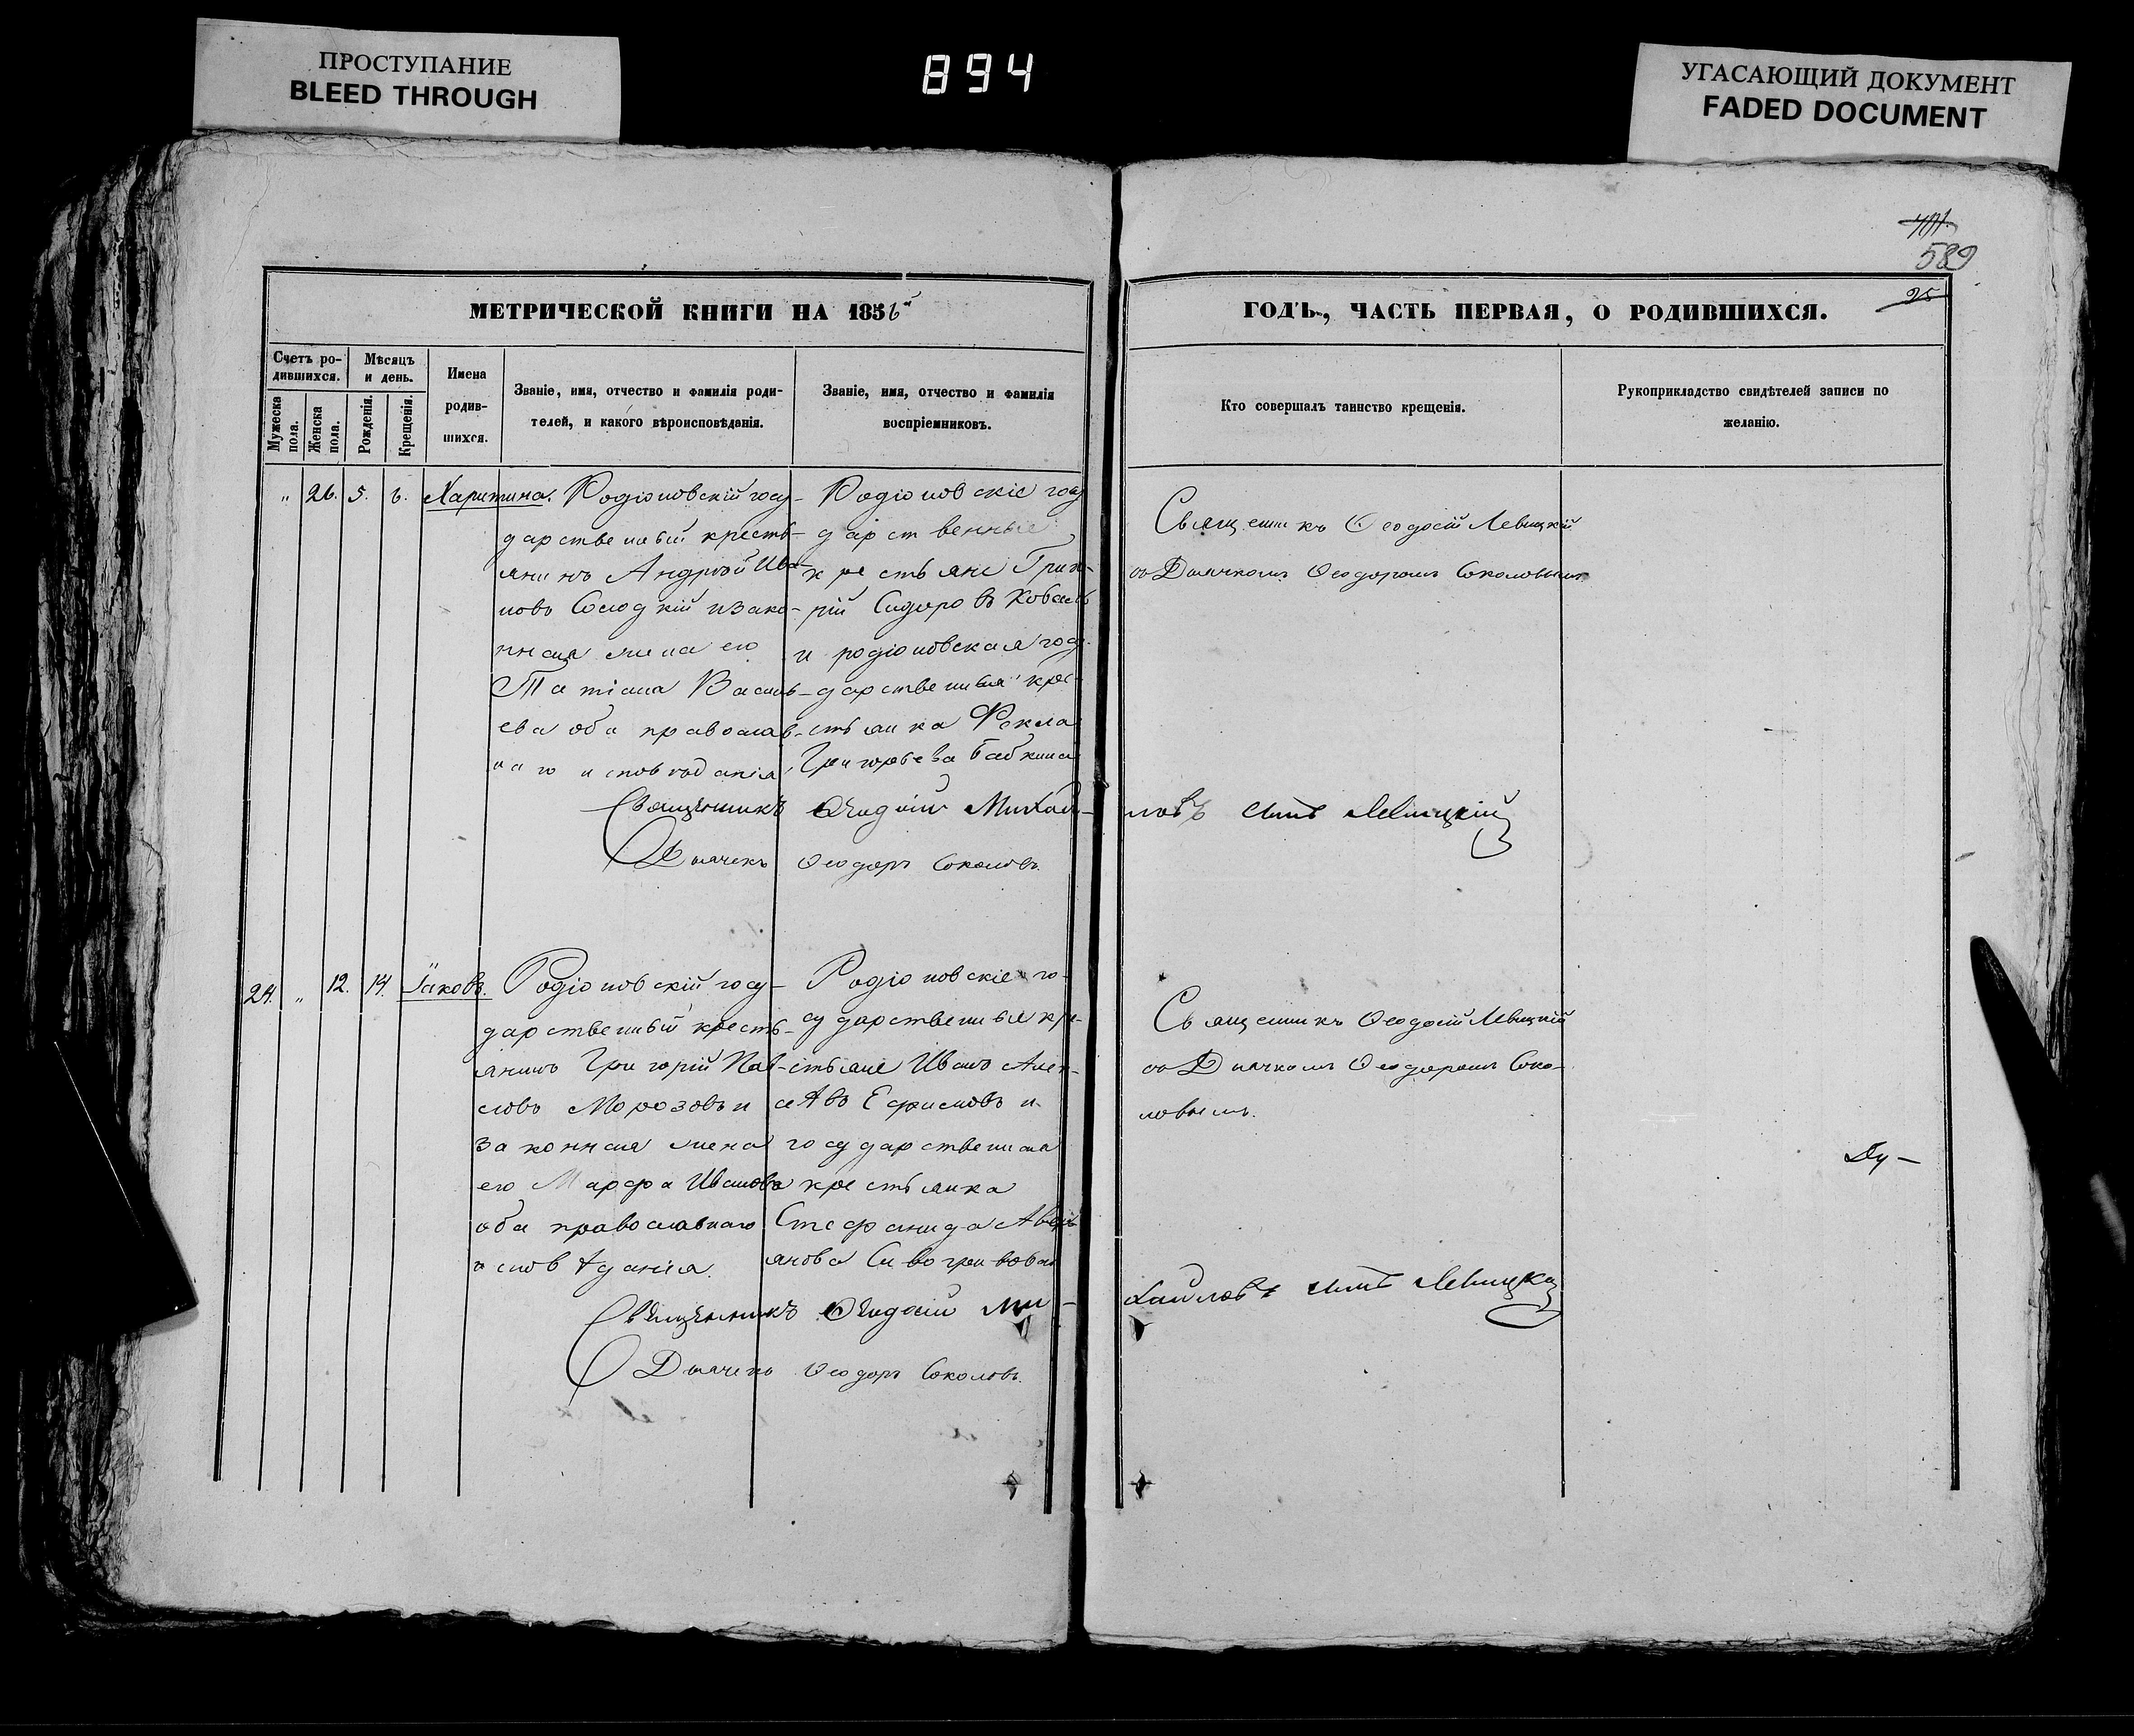 ПРОСТУПАНИЕ
BLEED THROUGH
894
УГАСАЮЩИЙ ДОКУМЕНТ
FADED DOCUMENT
589
25
МЕТРИЧЕСКОЙ КНИГИ НА 1856
ГОДЪ, ЧАСТЬ ПЕРВАЯ, О РОДИВШИХСЯ.
Счетъ ро-
дившихся.
Мужеска
пола.
Женска
пола.
Мѣсяцъ
и день.
Рожденія.
Крещенія.
Имена
родив-
шихся.
Званіе, имя, отчество и фамилія роди-
телей, и какого вѣроисповѣданія.
Званіе, имя, отчество и фамилія
воспріемниковъ.
Кто совершалъ таинство крещенія.
Рукоприкладство свидѣтелей записи по
желанію.
" 26. 5. Харитина.
Родіоновскій госу-
дарственный кресть-
янинъ Андрѣй Ива-
новъ и зако-
нная жена его
Татіана Василь-
ева оба православ-
наго исповѣданія
Родіоновскіе госу
дарственные
крестьяне Григо-
рій Сидоровъ Коваль
и родіоновская госу-
дарственная кре-
стьянка Фекла
Григорьева Бабкина
Священникъ Ѳеодосій Левицкій
со Дьячкомъ Ѳеодоромъ Соколовымъ
Священникъ Ѳеодосій Михай-
ловъ сынъ Левицкій
Дьячекъ Ѳеодоръ Соколовъ.
24. " 12. 14. Іаковъ.
Родіоновскій госу-
дарственный кресть-
янинъ Григорій Пав-
ловъ Морозовъ и
законная жена
его Марфа Иванова
оба православнаго
исповѣданія.
Родіоновскіе го-
сударственныя кре-
стьяне Иванъ Алек-
сѣевъ Ефимовъ и
государственная
крестьянка
Стефанида
Священникъ Ѳеодосій Левицкій
со Дьячкомъ Ѳеодоромъ Соко-
ловымъ.
Ду-
Священникъ Ѳеодосій Ми-
хайловъ сынъ Левицкій
Дьячекъ Ѳеодоръ Соколовъ.